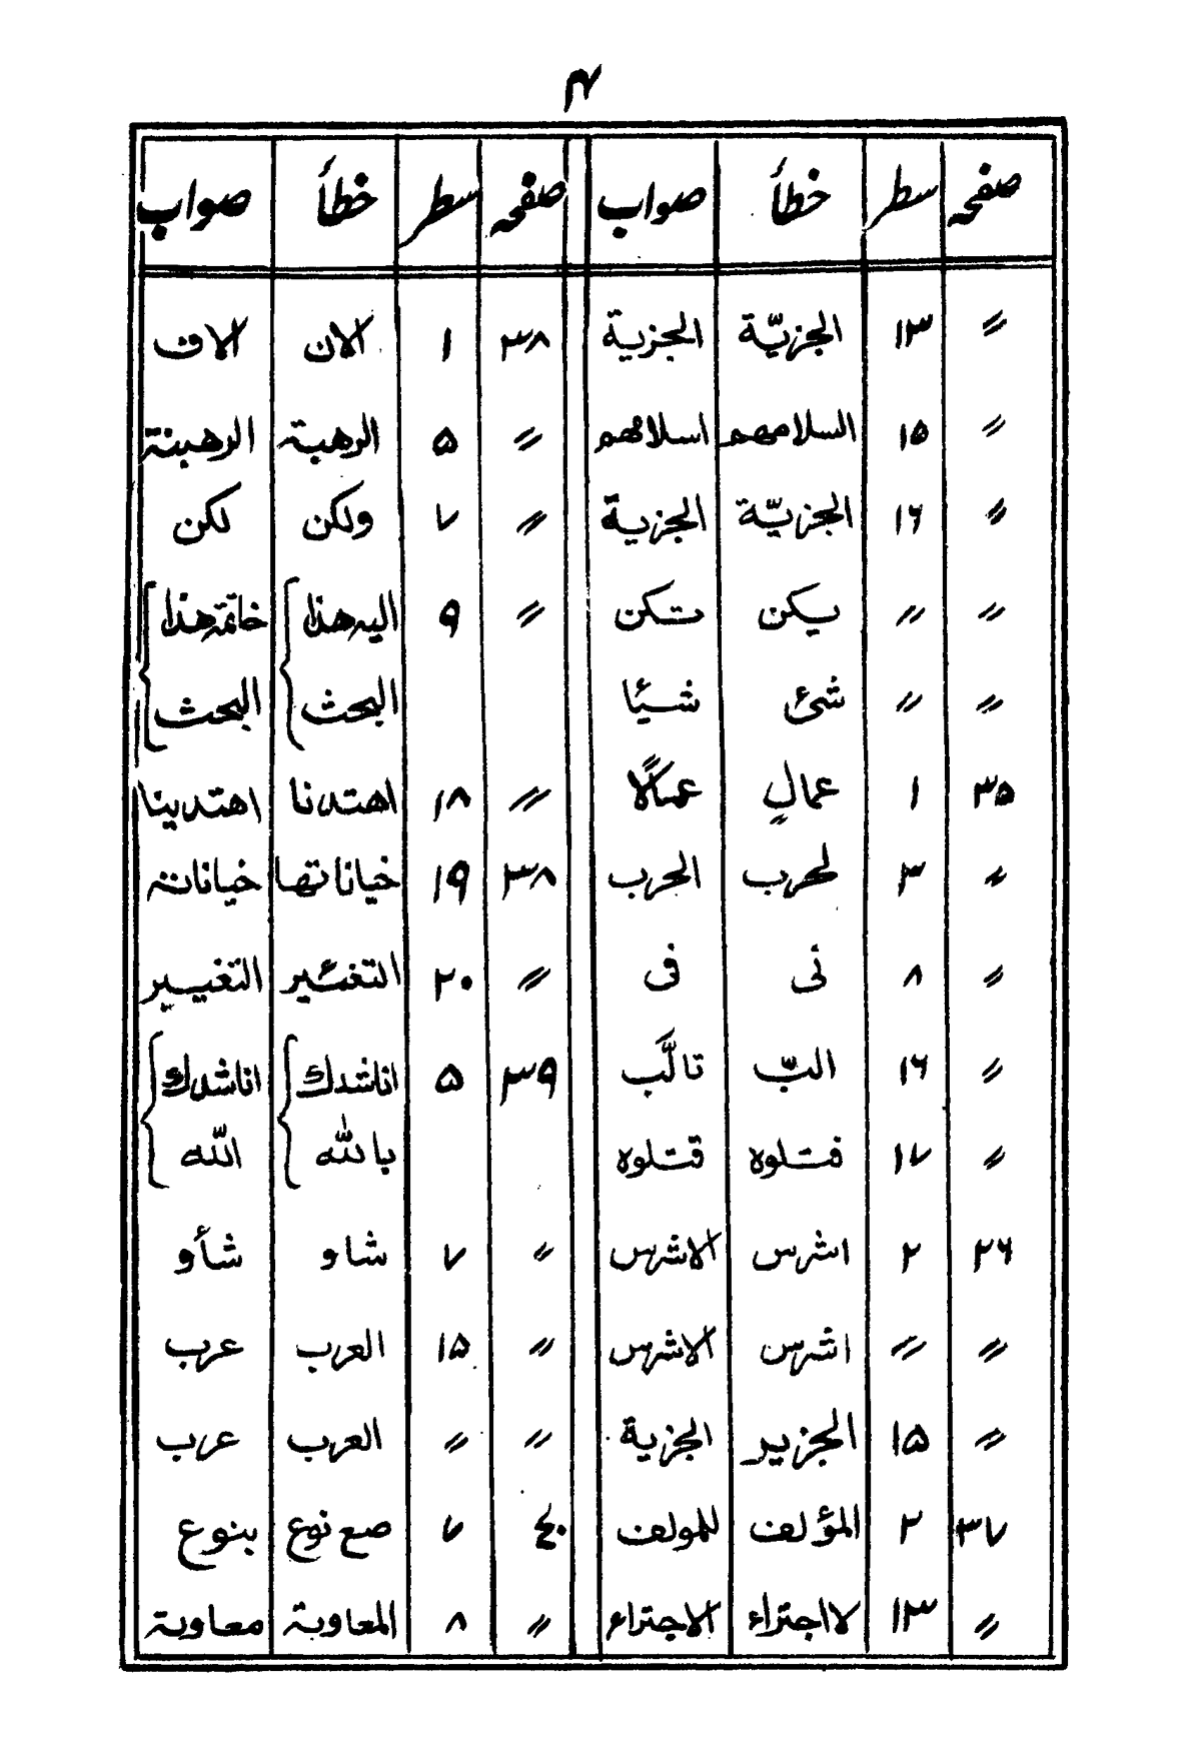 ٤
صفحہ سطر خطأ صواب صفحہ سطر خطأ صواب
〃 ۱۳ الجزيّة الجزية ۳۸ ۱ الان الاف
〃 ۱۵ السلامهم اسلامهم 〃 ۵ الرهبة الرهبنة
〃 ۱۶ الجزيّة الجزية 〃 ۷ ولكن لكن
〃 〃 يكن تكن 〃 ۹ اليه هذا خاتمة هذا
〃 〃 شئ شيئا البحث البحث
۳۵ ۱ عمالٍ عمالًا 〃 ۱۸ اهتدنا اهتدينا
〃 ۳ لحرب الحرب ۳۸ ۱۹ خياناتها خياناته
〃 ۸ نى فى 〃 ۲۰ التغئير التغيير
〃 ۱۶ البّ تالّب ۳۹ ۵ اناشدك اناشدك
〃 ۱۷ فتلوه قتلوه بالله الله
۲۶ ۲ اشرس الاشرس 〃 ۷ شاو شأو
〃 〃 اشرس الاشرس 〃 ۱۵ العرب عرب
〃 ۱۵ الجزير الجزية 〃 〃 العرب عرب
۳۷ ۲ المؤلف للمولف ٤۰ ۷ صع نوع بنوع
〃 ۱۳ لااجتراء الاجتراء 〃 ۸ المعاوية معاوية